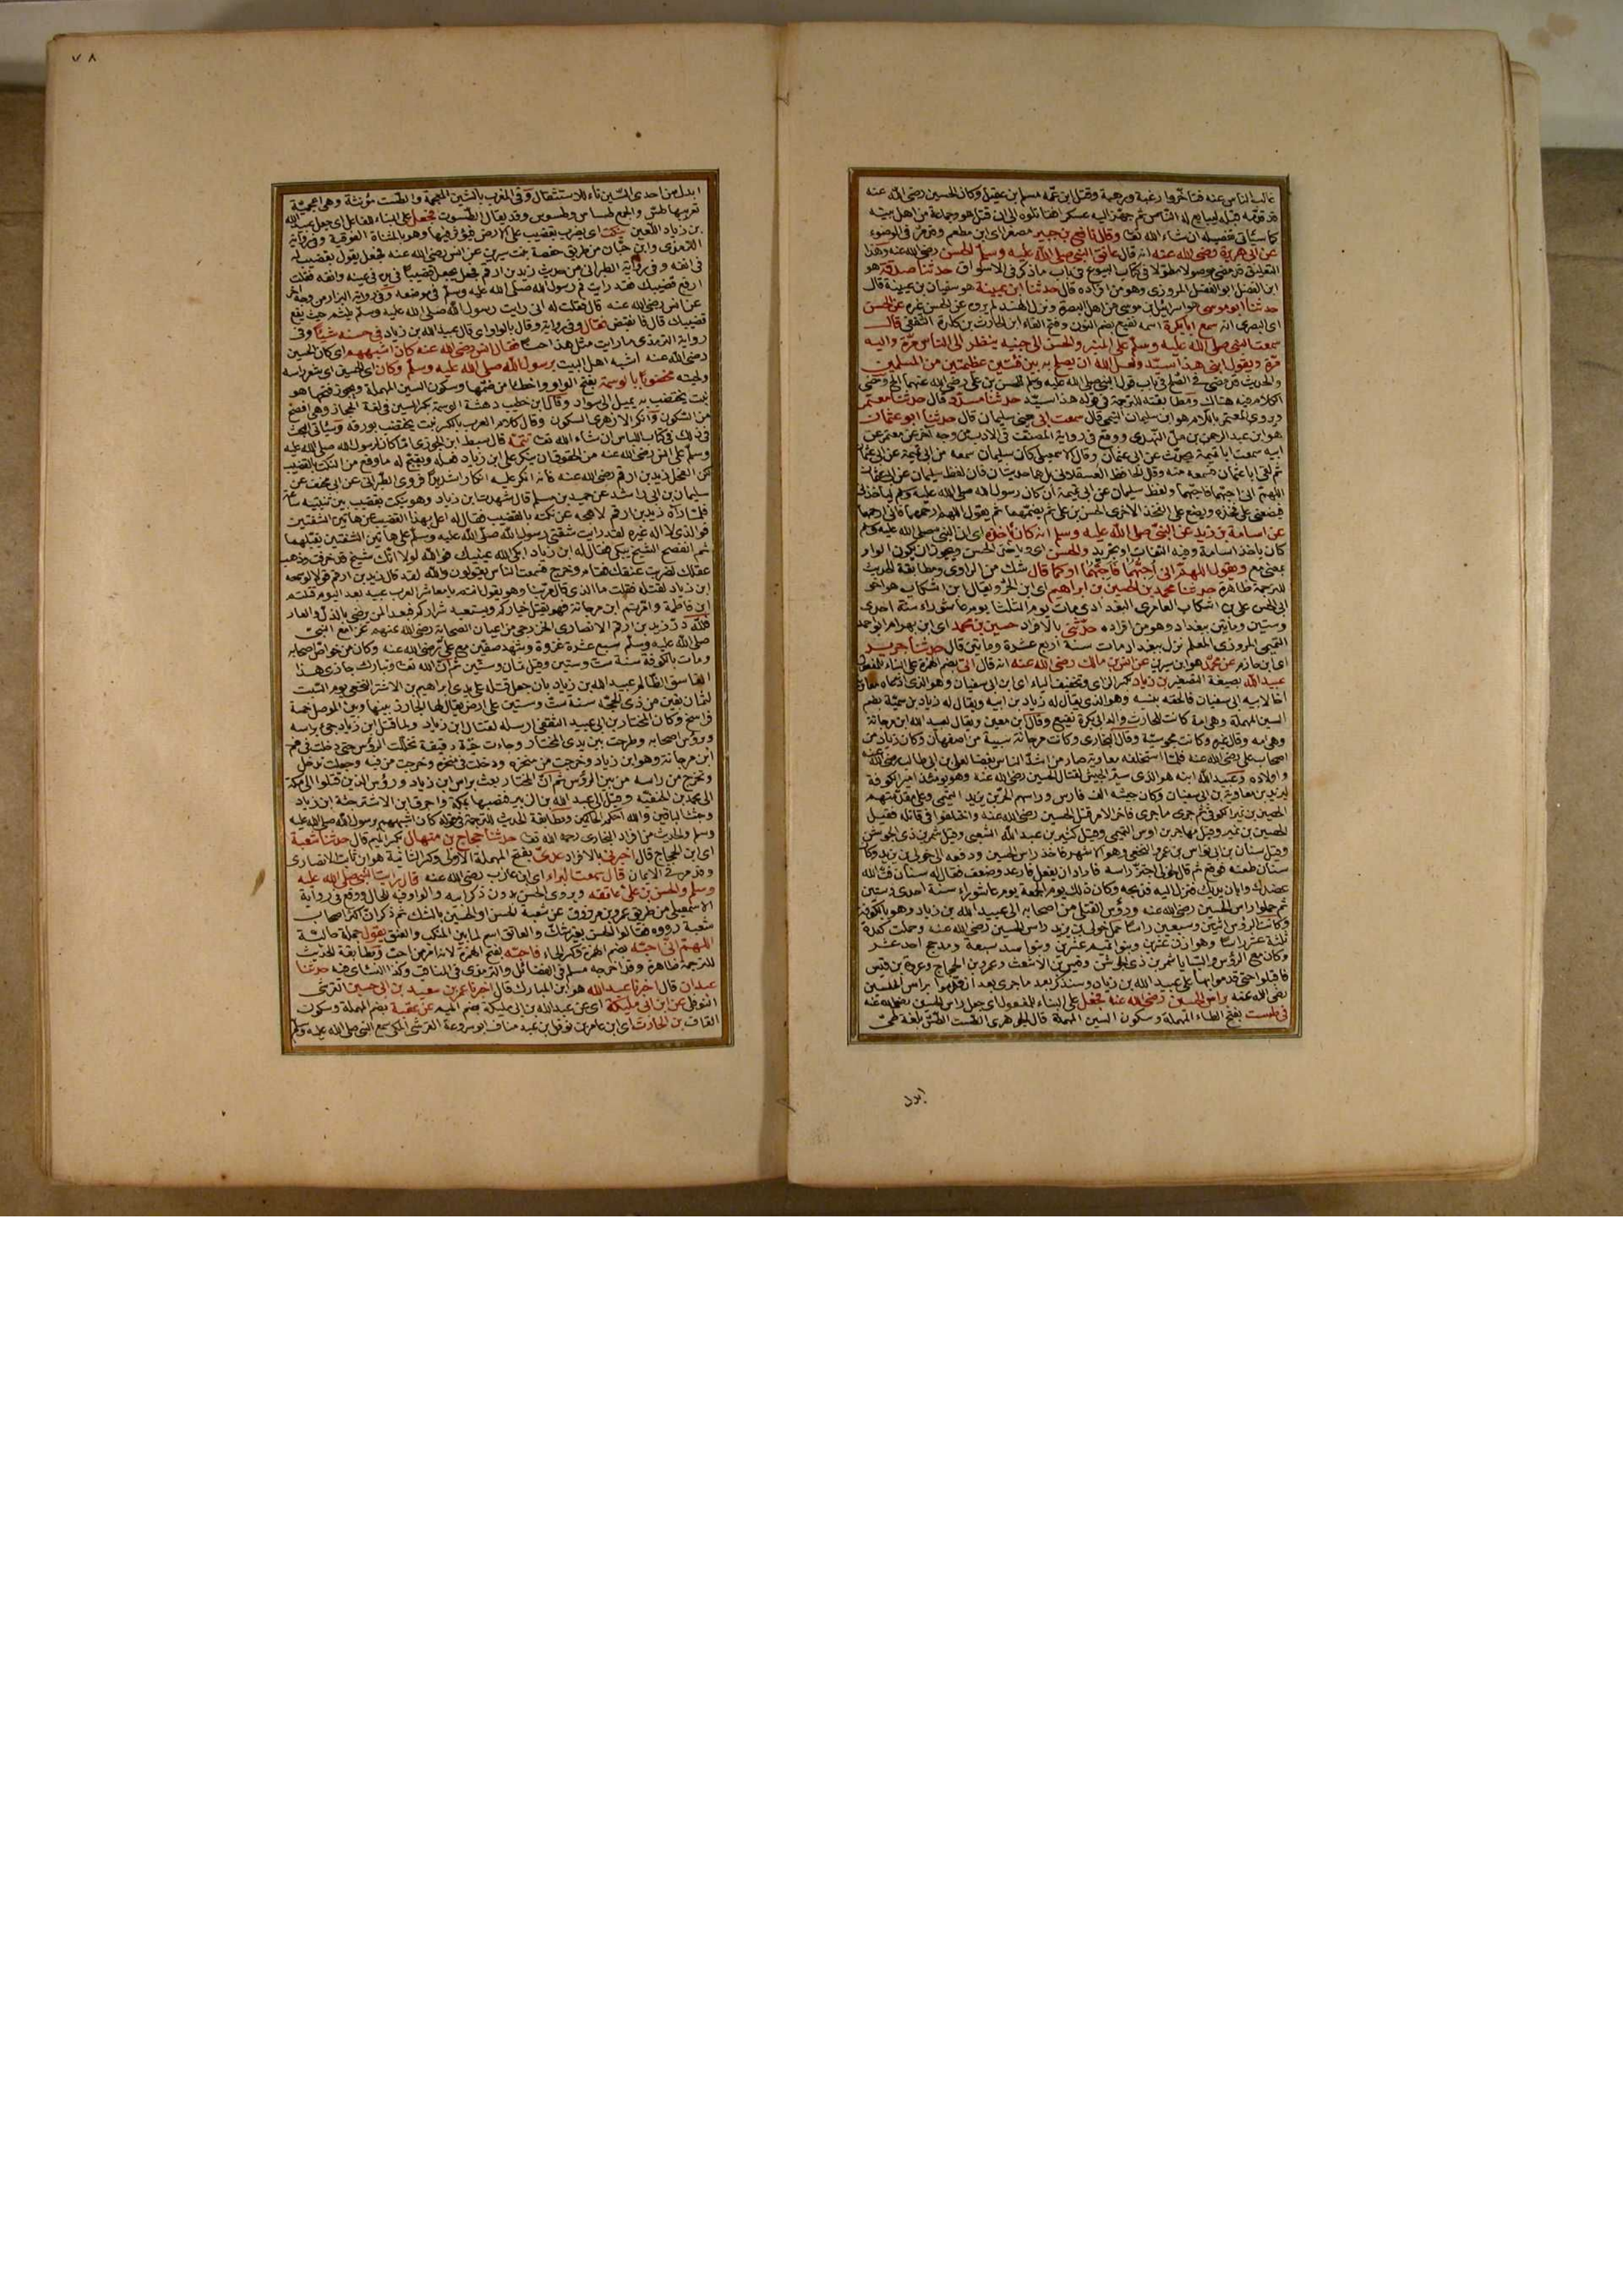 غالب الناس عنه فتأخروا رغبة ورهبة وقتل ابن عمه مسلم بن عقيل وكان الحسين رضي الله عنه
قد قدمه قبله ليبايع له الناس ثم جهز اليه عسكرا فقاتلوه الى ان قتل هو وجماعة من اهل بيته
كما سيأتي تفصيله ان شاء الله تعا وقال نافع بن جبير مصغرا اي ابن مطعم وقد مر في الوضوء
عن ابي هريرة رضي الله عنه انه قال عانق النبي صلى الله عليه وسلم الحسن رضي الله عنه وهذا
التعليق قد مضى موصولا مطولا في كتاب البيوع في باب ما ذكر في الاسواق حدثنا صدقة هو
ابن الفضل ابو الفضل المروزي وهو من افراده قال حدثنا ابن عيينة هو سفيان بن عيينة قال
حدثنا ابو موسى هو اسرائيل بن موسى من اهل البصرة ونزل الهند لم يروه عن الحسن غيره عن الحسن
اي البصري انه سمع ابا بكرة اسمه نفيع بضم النون وفتح الفاء ابن الحارث بن كلدة الثقفي قال
سمعت النبي صلى الله عليه وسلم على المنبر والحسن الى جنبه ينظر الى الناس مرة واليه
مرة ويقول ابني هذا سيد ولعل الله ان يصلح به بين فئتين عظيمتين من المسلمين
والحديث قد مضى في الصلح في باب قول النبي صلى الله عليه وسلم للحسن بن علي رضي الله عنهما الخ ومضى
الكلام فيه هناك ومطابقته للترجمة في قوله هذا سيد حدثنا مسدد قال حدثنا معتمر
ويروى المعتمر باللام هو ابن سليمان التيمي قال سمعت ابي يعني سليمان قال حدثنا ابو عثمان
هو ابن عبد الرحمن بن مل النهدي ووقع في رواية المصنف في الادب من وجه آخر عن معتمر عن
ابيه سمعت ابا تميمة يحدث عن ابي عثمان وقال الاسمعيلي كأن سليمان سمعه من ابي تميمة عن ابي عثمان
ثم لقي ابا عثمان فسمعه منه وقال الحافظ العسقلاني بل هما حديثان فان لفظ سليمان عن ابي عثمان
اللهم اني احبهما فاحبهما ولفظ سليمان عن ابي تميمة ان كان رسول الله صلى الله عليه وسلم ليأخذني
فيضعني على فخذه ويضع على الفخذ الاخرى الحسن بن علي ثم يضمهما ثم يقول اللهم ارحمهما فاني ارحمهما
عن اسامة بن زيد عن النبي صلى الله عليه وسلم انه كان يأخذه اي ان النبي صلى الله عليه وسلم
كان يأخذ اسامة وفيه التفات او تجريد والحسن اي ويأخذ الحسن ويجوز ان يكون الواو
بمعنى مع ويقول اللهم اني احبهما فاحبهما او كما قال شك من الراوي ومطابقة الحديث
للترجمة ظاهرة حدثنا محمد بن الحسين بن ابراهيم اي ابن الحر ويقال ابن اشكاب هو اخو
ابي الحسن علي بن اشكاب العامري البغدادي مات يوم الثلثا يوم عاشوراء سنة احدى
وستين ومائتين ببغداد وهو من افراده حدثني بالافراد حسين بن محمد اي ابن بهرام ابو احمد
التميمي المروزي المعلم نزل بغداد مات سنة اربع عشرة ومائتين قال حدثنا جرير
اي ابن حازم عن محمد هو ابن سيرين عن انس بن مالك رضي الله عنه انه قال اتي بضم الهمزة على البناء للمفعول
عبيد الله بصيغة التصغير بن زياد بكسر الزاي وتخفيف الياء اي ابن ابي سفيان وهو الذي ادعاه معاوية
اخا لابيه ابي سفيان فالحقه بنسبه وهو الذي يقال له زياد بن ابيه ويقال له زياد بن سمية بضم
السين المهملة وهي امة كانت للحارث والد ابي بكرة نفيع وقال ابن معين ويقال لعبيد الله ابن مرجانة
وهي امه وقال غيره وكانت مجوسية وقال البخاري وكانت مرجانة سبية من اصفهان وكان زياد من
اصحاب علي رضي الله عنه فلما استلحقه معاوية صار من اشد الناس بغضا لعلي بن ابي طالب رضي الله عنه
واولاده وعبيد الله ابنه هو الذي سير الجيش لقتال الحسين رضي الله عنه وهو يومئذ امير الكوفة
ليزيد بن معاوية بن ابي سفيان وكان جيشه الف فارس ورأسهم الحر بن يزيد التميمي وعلى مقدمتهم
الحصين بن نمير الكوفي ثم جرى ما جرى فآخر الامر قتل الحسين رضي الله عنه واختلفوا في قاتله فقيل
الحصين بن نمير وقيل مهاجر بن اوس التميمي وقيل كثير بن عبد الله الشعبي وقيل شمر بن ذي الجوشن
وقيل سنان بن ابي اوس بن عمرو النخعي وهو الاشهر فاخذ رأس الحسين ودفعه الى خولي بن يزيد وكان
سنان طعنه فوقع ثم قال لخولي احتز رأسه فاراد ان يفعل فارعد وضعف فقال له سنان فت الله
عضدك وابان يديك فنزل اليه فذبحه وكان ذلك يوم الجمعة يوم عاشوراء سنة احدى وستين
ثم حملوا رأس الحسين رضي الله عنه ورؤس القتلى من اصحابه الى عبيد الله بن زياد وهو بالكوفة
وكانت الرؤس اثنين وسبعين رأسا حمل خولي بن يزيد رأس الحسين رضي الله عنه وحملت كندة
ثلثة عشر رأسا وهوازن عشرين وبنو تميم عشرين وبنو اسد سبعة ومذحج احد عشر
وكان مع الرؤس والسبايا شمر بن ذي الجوشن وقيس بن الاشعث وعمرو بن الحجاج وعروة بن قيس
فاقبلوا حتى قدموا بها على عبيد الله بن زياد وسنذكر بعد ما جرى بعد
رضي الله عنه برأس الحسين رضي الله عنه فجعل على البناء للمفعول اي جعل رأس الحسين رضي الله عنه
في طست بفتح الطاء المهملة وسكون السين المهملة قال الجوهري الطست الطس بلغة طي
ابدل
٧٨
ابدل من احدى السين تاء للاستثقال وفي المغرب بالشين المعجمة والطست مؤنثة وهي اعجمية
تعريبها طس والجمع طساس وطسوس وقد يقال الطسوت فجعل على البناء للفاعل اي جعل عبيد الله
بن زياد اللعين ينكت اي يضرب بقضيب على الارض فيؤثر فيها وهو بالمثناة الفوقية وفي رواية
الترمذي وابن حبان من طريق حفصة بنت سيرين عن انس رضي الله عنه فجعل يقول بقضيب له
في انفه وفي رواية الطبراني من حديث زيد بن ارقم فجعل يجعل قضيبا في يده في عينه وانفه فقلت
ارفع قضيبك فقد رأيت فم رسول الله صلى الله عليه وسلم في موضعه وفي رواية البزار من وجه آخر
عن انس رضي الله عنه قال فقلت له اني رأيت رسول الله صلى الله عليه وسلم يلثم حيث يقع
قضيبك قال فانقبض فقال وفي رواية وقال بالواو اي قال عبيد الله بن زياد في حسنه شيئا وفي
رواية الترمذي ما رأيت مثل هذا حسنا فقال انس رضي الله عنه كان اشبههم اي كان الحسين
رضي الله عنه اشبه اهل البيت برسول الله صلى الله عليه وسلم وكان اي الحسين اي شعر رأسه
ولحيته مخضوبا بالوسمة بفتح الواو واخطأ من ضمها وسكون السين المهملة ويجوز فتحها هو
نبت يختضب به يميل الى سواد وقال ابن خطيب دهشة الوسمة بكسر السين في لغة الحجاز وهي افصح
من السكون وانكر الازهري السكون وقال كلام العرب بالكسر نبت يختضب بورقه وسيأتي البحث
في ذلك في كتاب اللباس ان شاء الله تعا تتمة قال سبط ابن الجوزي اما كان لرسول الله صلى الله عليه
وسلم على انس رضي الله عنه من الحقوق ان ينكر على ابن زياد فعله ويقبح له ما وقع من النكت بالقضيب
لكن الفحل زيد بن ارقم رضي الله عنه فانه انكر عليه انكارا شديدا فروى الطبراني عن ابي مخنف عن
سليمان بن ابي راشد عن حميد بن مسلم قال شهدت ابن زياد وهو ينكت بقضيب بين ثنيتيه ساعة
فلما رآه زيد بن ارقم لا يجم عن نكته بالقضيب فقال له اعل بهذا القضيب عن هاتين الشفتين
فوالذي لا اله غيره لقد رأيت شفتي رسول الله صلى الله عليه وسلم على هاتين الشفتين يقبلهما
ثم انفضح الشيخ يبكي فقال له ابن زياد ابكى الله عينيك فوالله لولا انك شيخ قد خرفت وذهب
عقلك لضربت عنقك فقام وخرج فسمعت الناس يقولون والله لقد قال زيد بن ارقم قولا لو سمعه
ابن زياد لقتله فقلت ما الذي قال وهو يقول انتم يا معاشر العرب عبيد بعد اليوم قتلتم
ابن فاطمة وامرتم ابن مرجانة فهو يقتل خياركم ويستعبد شراركم فبعدا لمن رضي بالذل والعار
فلله در زيد بن ارقم الانصاري الخزرجي من اعيان الصحابة رضي الله عنهم غزا مع النبي
صلى الله عليه وسلم سبع عشرة غزوة وشهد صفين مع علي رضي الله عنه وكان من خواص اصحابه
ومات بالكوفة سنة ست وستين وقيل ثمان وستين ثم ان الله تعا وتبارك جازى هذا
الفاسق الظالم عبيد الله بن زياد بان جعل قتله على يدي ابراهيم بن الاشتر النخعي يوم السبت
لثمان بقين من ذي الحجة سنة ست وستين على ارض يقال لها الجازر بينها وبين الموصل خمسة
فراسخ وكان المختار بن ابي عبيد الثقفي ارسله لقتال ابن زياد ولما قتل ابن زياد جيء برأسه
وبرؤس اصحابه وطرحت بين يدي المختار وجاءت حية دقيقة تخللت الرؤس حتى دخلت في فم
ابن مرجانة وهو ابن زياد وخرجت من منخره ودخلت في منخره وخرجت من فيه وجعلت تدخل
وتخرج من رأسه من بين الرؤس ثم ان المختار بعث برأس ابن زياد ورؤس الذين قتلوا الى مكة
الى محمد بن الحنفية وقيل الى عبد الله بن الزبير فنصبها بمكة واحرق ابن الاشتر جثة ابن زياد
وجثث الباقين والله احكم الحاكمين ومطابقة الحديث للترجمة في قوله كان اشبههم برسول الله صلى الله عليه
وسلم والحديث من افراد البخاري رحمه الله تعا حدثنا حجاج بن منهال بكسر الميم قال حدثنا شعبة
اي ابن الحجاج قال اخبرني بالافراد عدي بفتح المهملة الاولى وكسر الثانية هو ابن ثابت الانصاري
وقد مر في الايمان قال سمعت البراء اي ابن عازب رضي الله عنه قال رأيت النبي صلى الله عليه
وسلم والحسن بن علي على عاتقه ويروى الحسن بدون ذكر ابيه والواو فيه للحال ووقع في رواية
الاسمعيلي من طريق عمرو بن مرزوق عن شعبة الحسن او الحسين بالشك ثم ذكر ان اكثر اصحاب
شعبة رووه فقالوا الحسن بغير شك والعاتق اسم لما بين المنكب والعنق يقول جملة حالية
اللهم اني احبه بضم الهمزة وكسر الحاء فاحبه بفتح الهمزة لانه امر من احب ومطابقة الحديث
للترجمة ظاهرة وقد اخرجه مسلم في الفضائل والترمذي في المناقب وكذا النسائي فيه حدثنا
عبدان قال اخبرنا عبد الله هو ابن المبارك قال اخبرنا عمر بن سعيد بن ابي حسين القرشي
النوفلي عن ابن ابي مليكة اي عن عبد الله بن ابي مليكة بضم الميم عن عقبة بضم المهملة وسكون
القاف بن الحارث اي ابن عامر بن نوفل بن عبد مناف ابو سروعة القرشي المكي سمع النبي صلى الله عليه وسلم